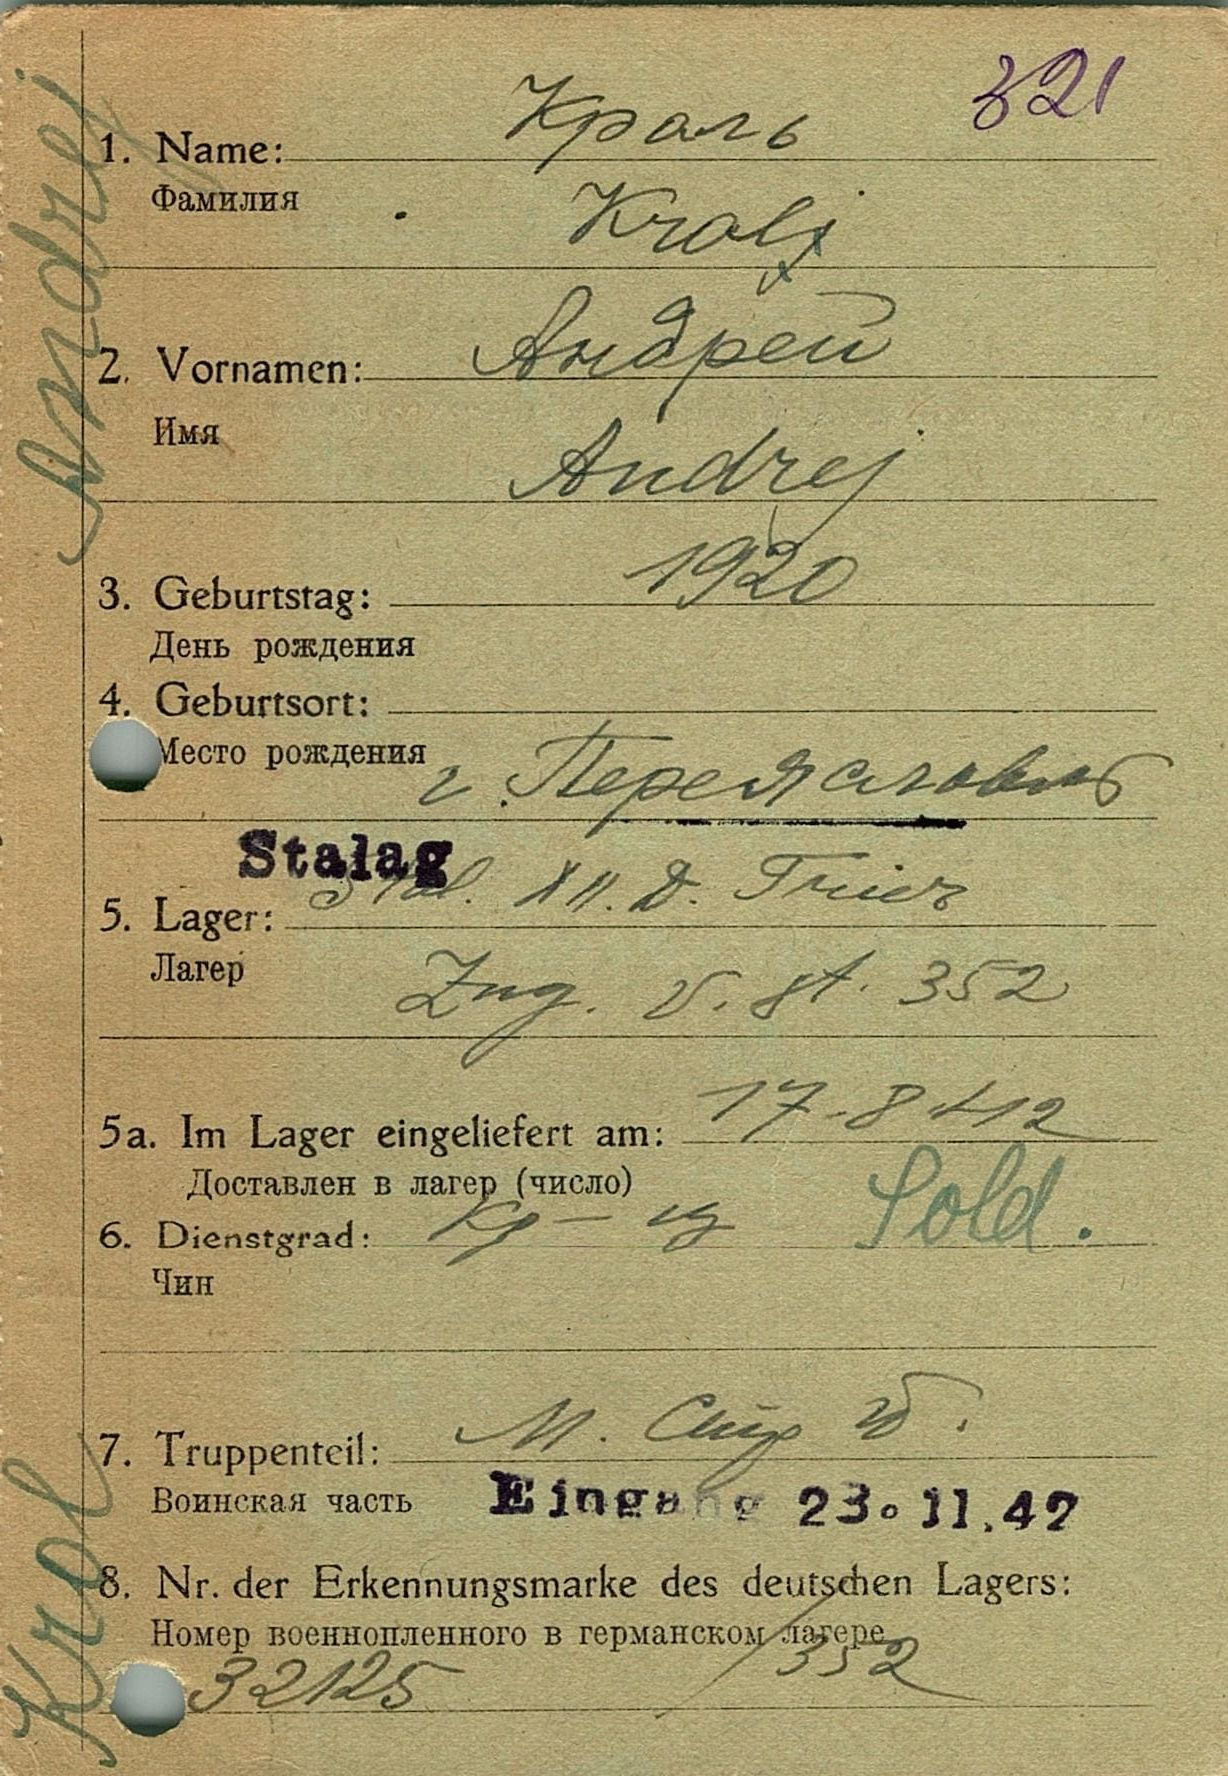 321
Краль
1. Name:
Фамилия
Kralj
Андрей
2. Vornamen:
Имя
Andrej
1920
3. Geburtstag:
День рождения
4. Geburtsort:
Место рождения
г. Переяславль
Stalag
Stal. XII. D. Trier
5. Lager:
Лагер
Zug. v. st. 352
17-8 42
5a. Im Lager eingeliefert am:
Доставлен в лагер (число)
6. Dienstgrad: Кр-ец Sold.
Чин
7. Truppenteil: М.
Воинская часть
Eingang 23. 11. 42
8. Nr. der Erkennungsmarke des deutschen Lagers:
Номер военнопленного в германском лагере
32125 / 352
Krol Andrej